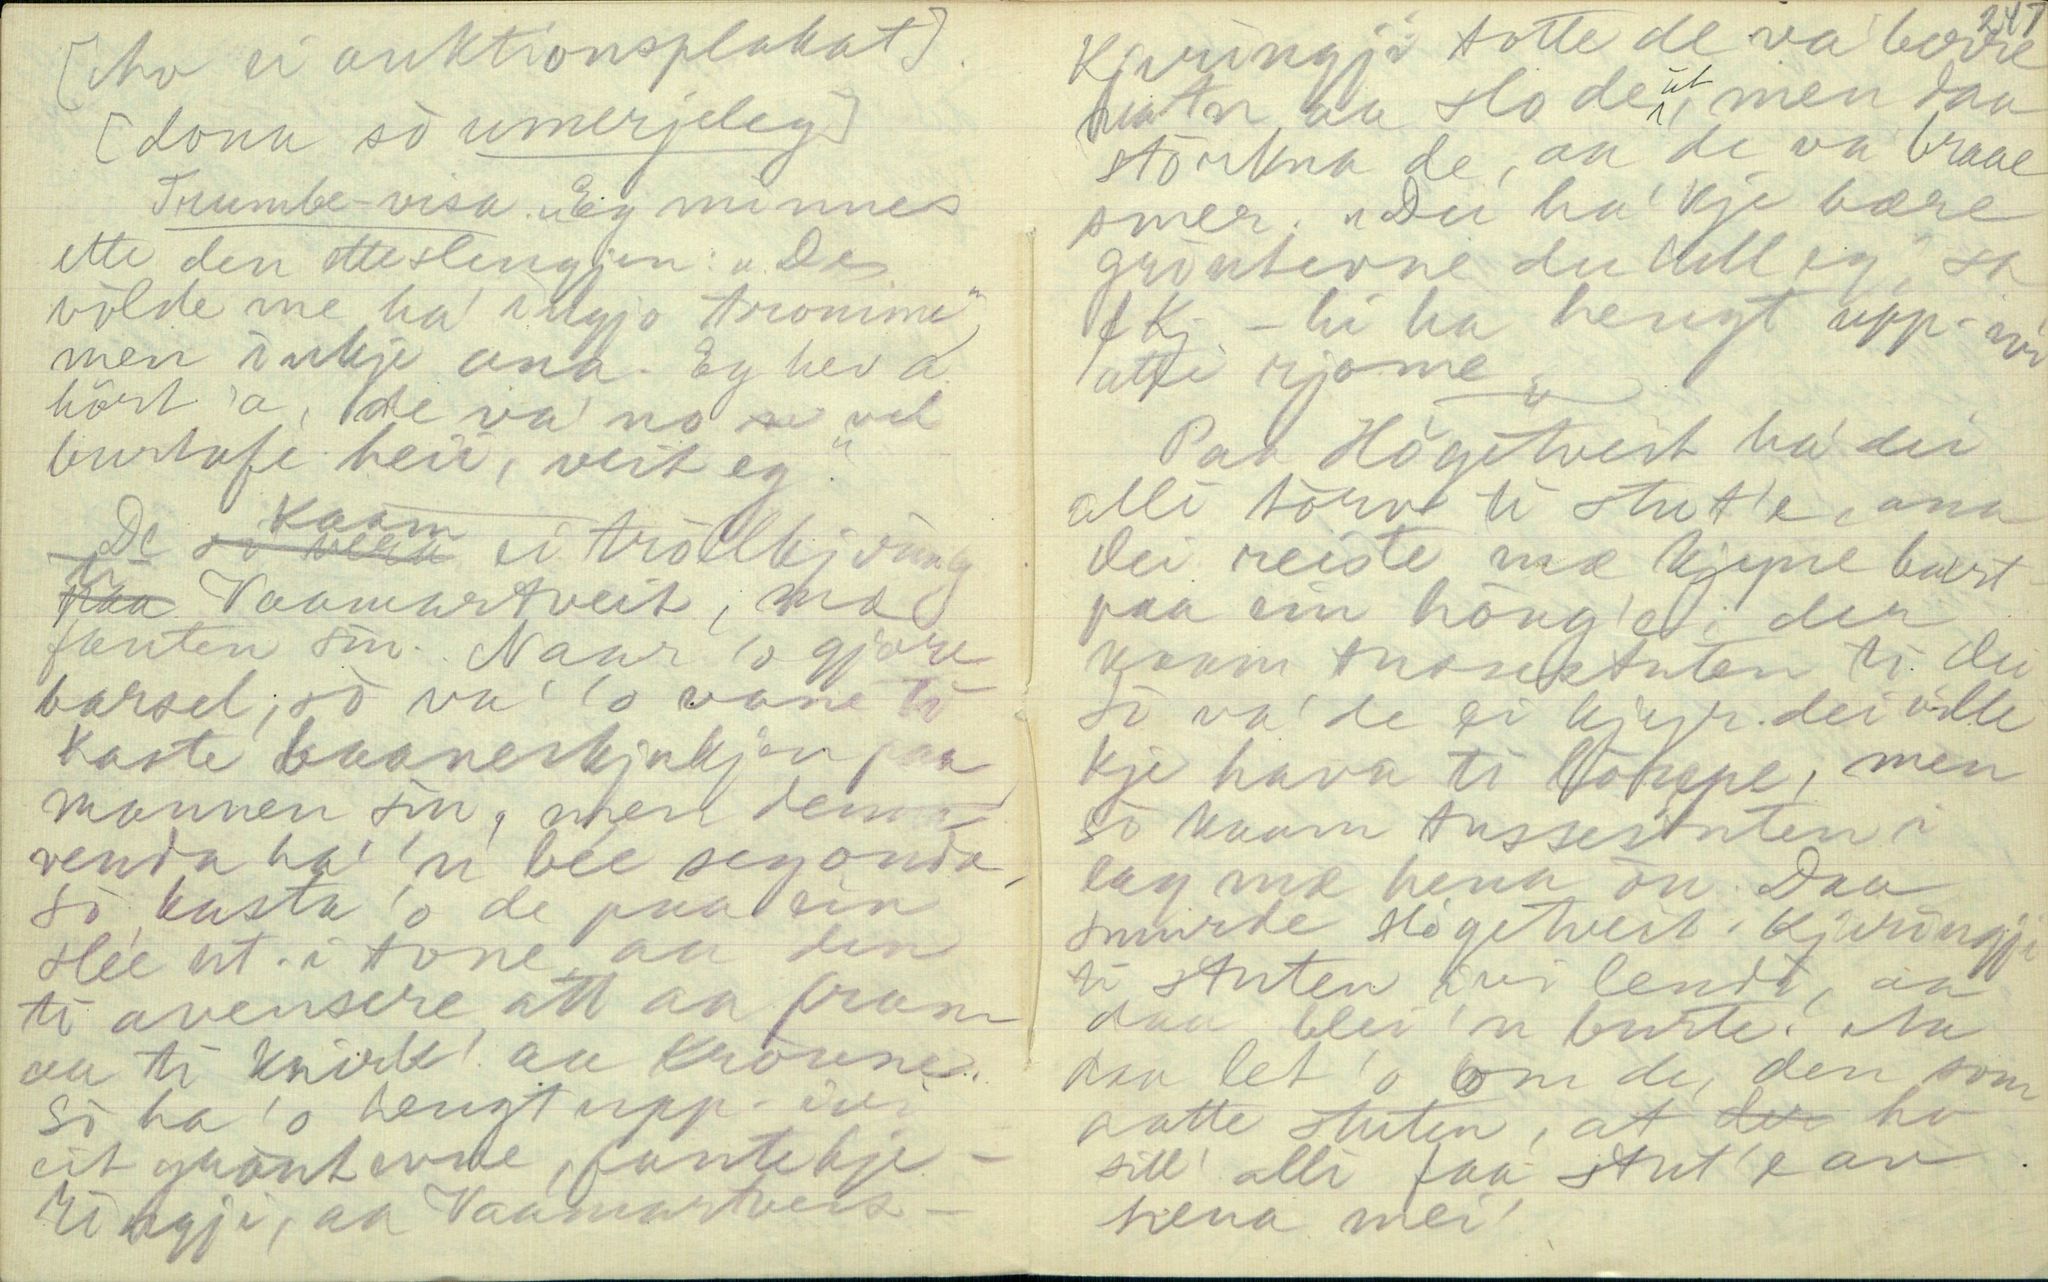 [ho ei auktionsplakat].
[dona so umerjeleg]
Trumbe-visa. "Eg minnes
ette den etteslengjen: "Da
völde me ha' ingjo tromme",
men inkje ana. Eg hev a
hört 'a, de va' no vel
burtafe heii, veit eg."
De kaam ei tröllkjering
Vaamartveit, mæ
fanten sin. Naar 'o gjore
barsel, so va' 'o vane ti
kaste baaneskjukjen paa
mannen sin, men denna
venda ha' 'n blee segonda,
so kasta 'o de paa ein
slee ut i tone, aa den
ti avensere att aa fram
aa ti knirk' aa krönne.
So ha 'o hengt upp-ivi
eit grönt erve, fantekje-
ringji, aa Vaamartveis-
247
Kjeringji totte de va' berre
aa slo de ut, men daa
störkna de, aa de va' braae
smer. "Dei ha' kje bære
grönterne du hell eg", sa
f Kj. – hi ha hengt upp-ivi
atti rjome
Paa Högetveit ha' dei
alli törvt ti stut'e, ana
dei reiste mæ kjyne burt-
paa ein höug'e; der
kaam tussestuten ti dei
So va' de ei kjyr dei ville
kje hava ti löupe, men
so kaam tussestuten i
lag mæ hena ön. Daa
smurde Högetveit-Kjeringji
ti stuten ivi lendi, aa
daa blei 'n burte. Aa
daa let 'o om de, den som
aatte stuten, at ho
sill' alli faa stut'e av
hena mei'